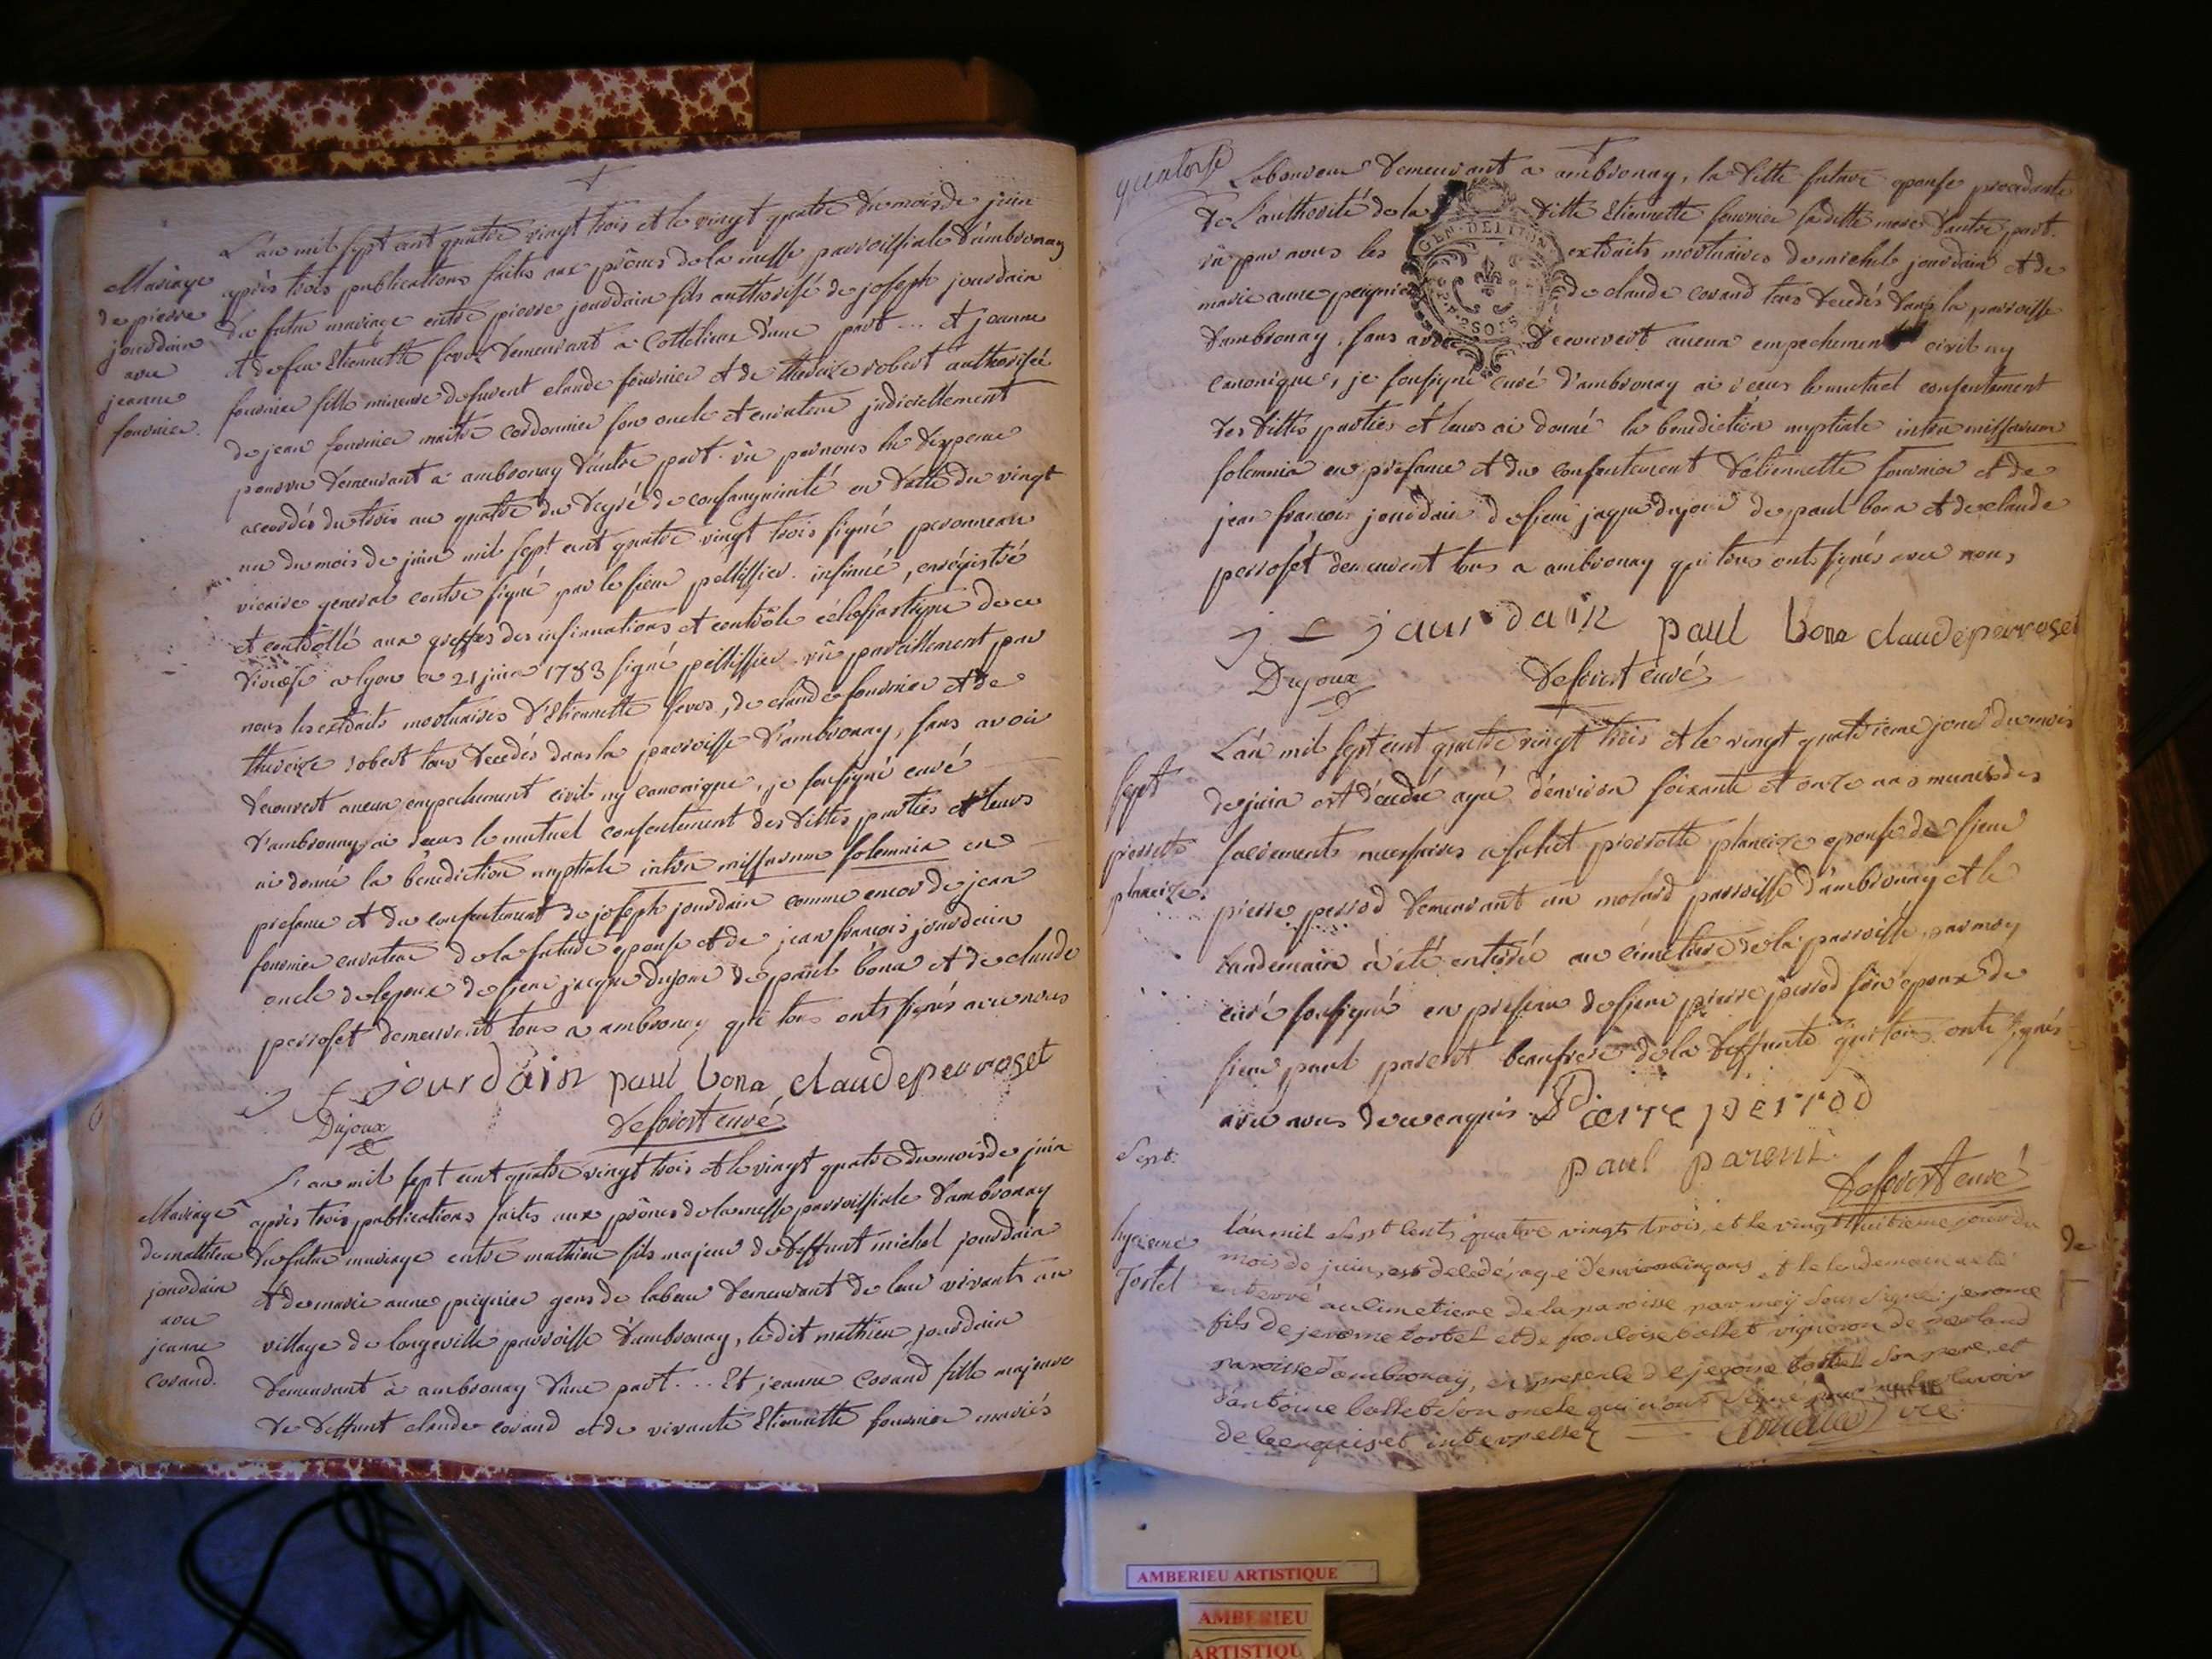 L'an mil sept cent quatre vingt trois et le vingt quatre du mois de juin
Mariage
de pierre
jourdain
avec
jeanne
fournier.
après trois publications faites aux prônes de la messe parroissiale d'ambronay
du futur mariage entre pierre jourdain fils authorisé de joseph jourdain
et de feu Etiennette demeurant à Cottelieux d'une part ... et jeanne
fournier fille mineure de furent claude fournier et de thereize robert authorisée
de jean fournier maitre cordonnier son oncle et curateur judiciellement
pourvu demeurant à ambronay d'autre part. vû par nous la dispense
accordés du trois au quatre du degré de consanguinité en datte du vingt
un du mois de juin mil sept cent quatre vingt trois signé peronneau
vicaire general contre signé par le sieur pellissier. insinué, enrégistré
et controllé aux greffes des insinuations et contrôle éclésiastique de ce
diocèse a lyon ce 21 juin 1783 signé pellissier. vû pareillement par
nous les extraits mortuaires d'Etiennette de claude fournier et de
thereize robert tous decedés dans la parroisse d'ambronay, sans avoir
decouvert aucun empechement civil ny canonique, je sousigné curé
d'ambronay ai recus le mutuel consentement des dittes parties et leurs
ai donné la bénédiction nuptiale intra missarum solemnia en
presence et du consentement de joseph jourdain comme encor de jean
fournier curateur de la future épouse et de jean françois jourdain
oncle de lepoux de sieur jacque dujoux de paul bona et de claude
perroset demeurant tous a ambronay qui tous onts signés avec nous
j f jourdain paul bona claude perroset
Dujoux
Deforest curé
L'an mil sept cent quatre vingt trois et le vingt quatre du mois de juin
Mariage
de mathieu
jourdain
avec
jeanne
corand.
après trois publications faites aux prônes de la messe parroissiale d'ambronay
du futur mariage entre mathieu fils majeur de deffunt michel jourdain
et de marie anne peignier gens de labeur demeurant de leur vivants au
village de longeville parroisse d'ambronay, ledit mathieu jourdain
demeurant à ambronay d'une part ... Et jeanne corand fille majeure
de deffunt claude corand et de vivante Etiennette fournier mariés
quatorse
Laboureur demeurant a ambronay, la ditte future epouse procedante
de l'authorité de la ditte Etiennette fournier sa ditte mere d'autre part.
GEN. DE DIJON
vû par nous les extraits mortuaires de michel jourdain et de
marie anne peignier de claude corand tous decedés dans la parroisse
d'ambronay, sans avoir decouvert aucun empechement civil ny
canonique, je sousigné curé d'ambronay ai recus le mutuel consentement
des dittes parties et leurs ai donné la benediction nuptiale intra missarum
solemnia en presence et du consentement d'étiennette fournier et de
jean françois jourdain de sieur jaque dujoux de paul bona et de claude
perroset demeurent tous a ambronay qui tous onts signés avec nous,
j f jourdain paul bona claude perroset
Dujoux
Deforest curé
L'an mil sept cent quatre vingt trois et le vingt quatrieme jour du mois
Sept
pierrette
planeize.
de juin est décédée agée d'environ soixante et onze ans munie des
sacrements necessaires a salut pierrette planeize epouse de sieur
pierre perrod demeurant au molard parroisse d'ambronay et le
landemain à été enterrée au cimetiere de la parroisse, par moy
curé sousigné en presence de sieur pierre perrod son epoux de
sieur paul parent beaufrere de la deffunte qui tous onts signés
avec nous de ce enquis. Pierre perrod
paul parent.
Deforest curé
Sept.
hyerome
Tostel
l'an mil Sept Cents quatre vingts trois, et le vingt huitieme jour du
mois de juin, est decedé, agé d'environ ans et le lendemain a eté
enterré au Cimetiere de la paroisse par moÿ Sous Signé jerome
fils de jerome tostel et de françoise ballet vigneron de
paroisse d'ambronaÿ, en presence de jerome tostel Son pere, et
d'antoine ballet Son oncle qui n'ont Signé pour ne le Savoir
de ce enquis et interpellez vic.
de
AMBERIEU ARTISTIQUE
AMBERIEU
ARTISTIQU